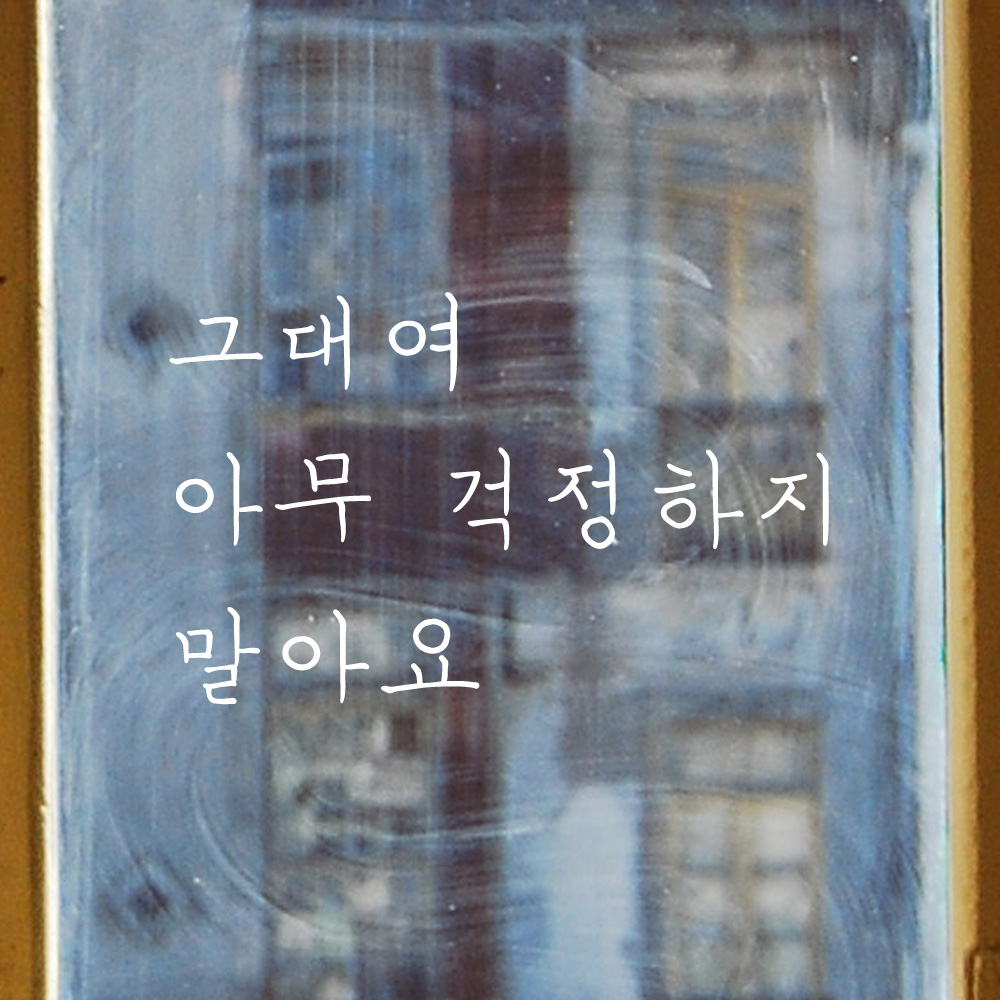 그대여
아무 걱정하지
말아요